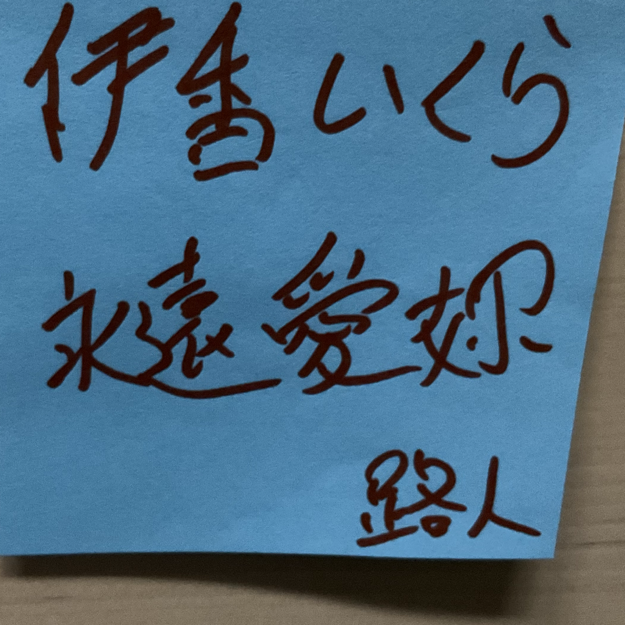 伊香いくら
永遠愛妳
路人